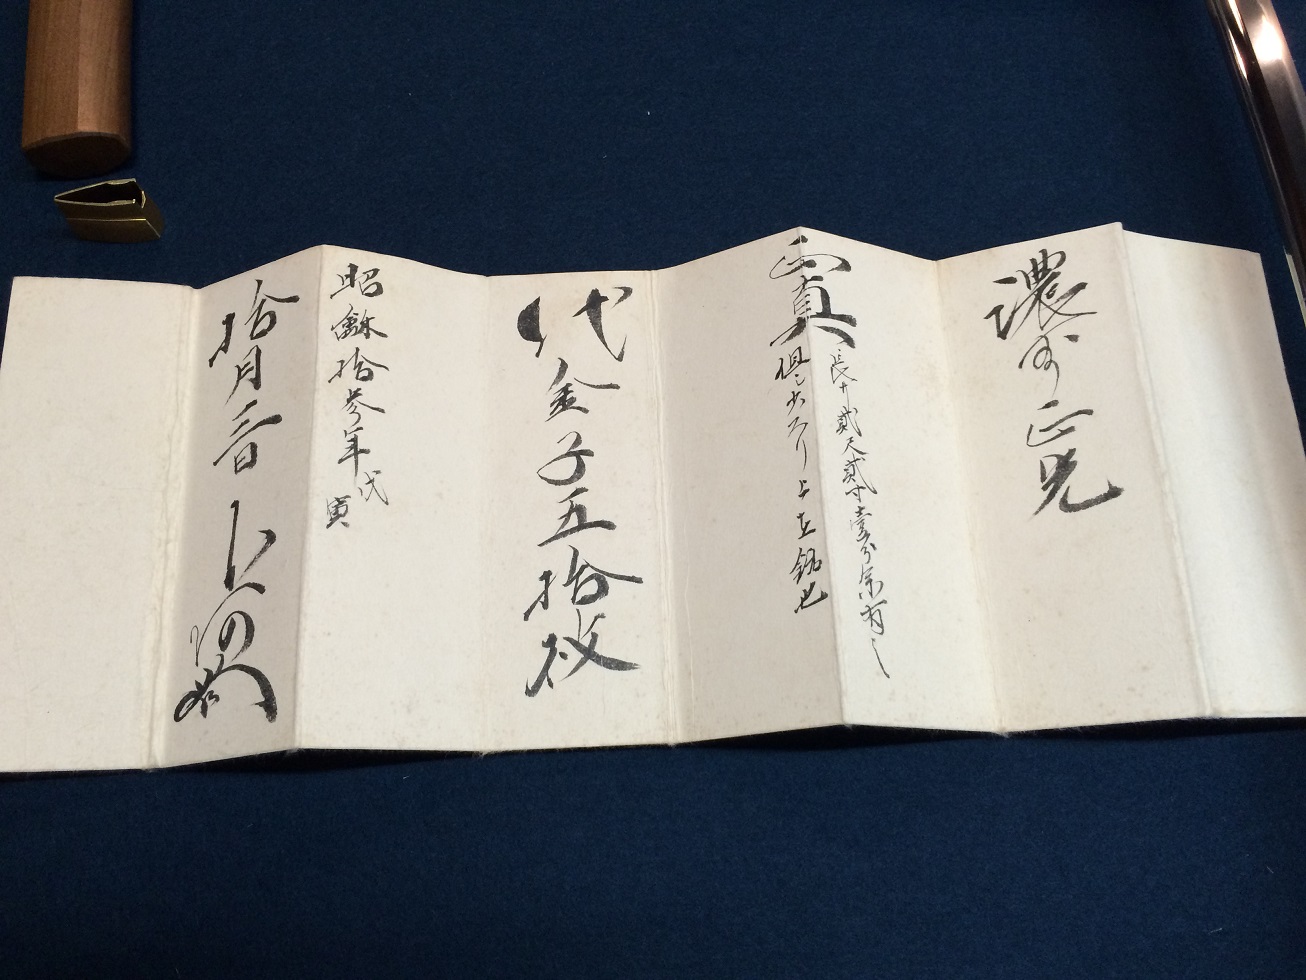 濃州正兄
正真
長サ貳尺貳寸壹分余有之
但シ大スリ上在銘也
代金子五拾枚
昭龢拾参年戊寅
拾月三日